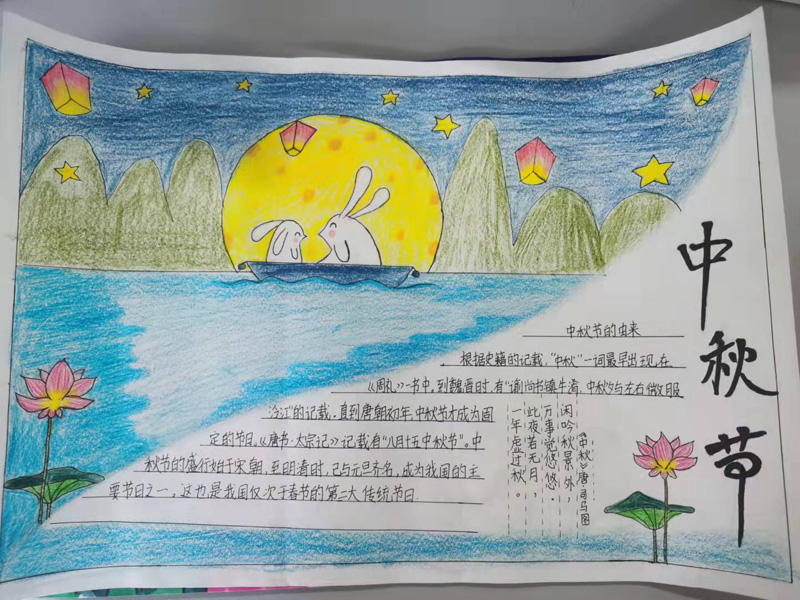 中秋节
中秋节的由来
根据史籍的记载,“中秋”一词最早出现在
《周礼》一书中,到魏晋时,有“谕尚书镇牛渚,中秋夕与左右微服
泛江”的记载,直到唐朝初年,中秋节才成为固
定的节日。《唐书·太宗记》记载有“八月十五中秋节”。中
秋节的盛行始于宋朝,至明清时,已与元旦齐名,成为我国的主
要节日之一。这也是我国仅次于春节的第二大传统节日
《中秋》唐·司马图
闲吟秋景外,
万事觉悠悠。
此夜若无月,
一年虚过秋。